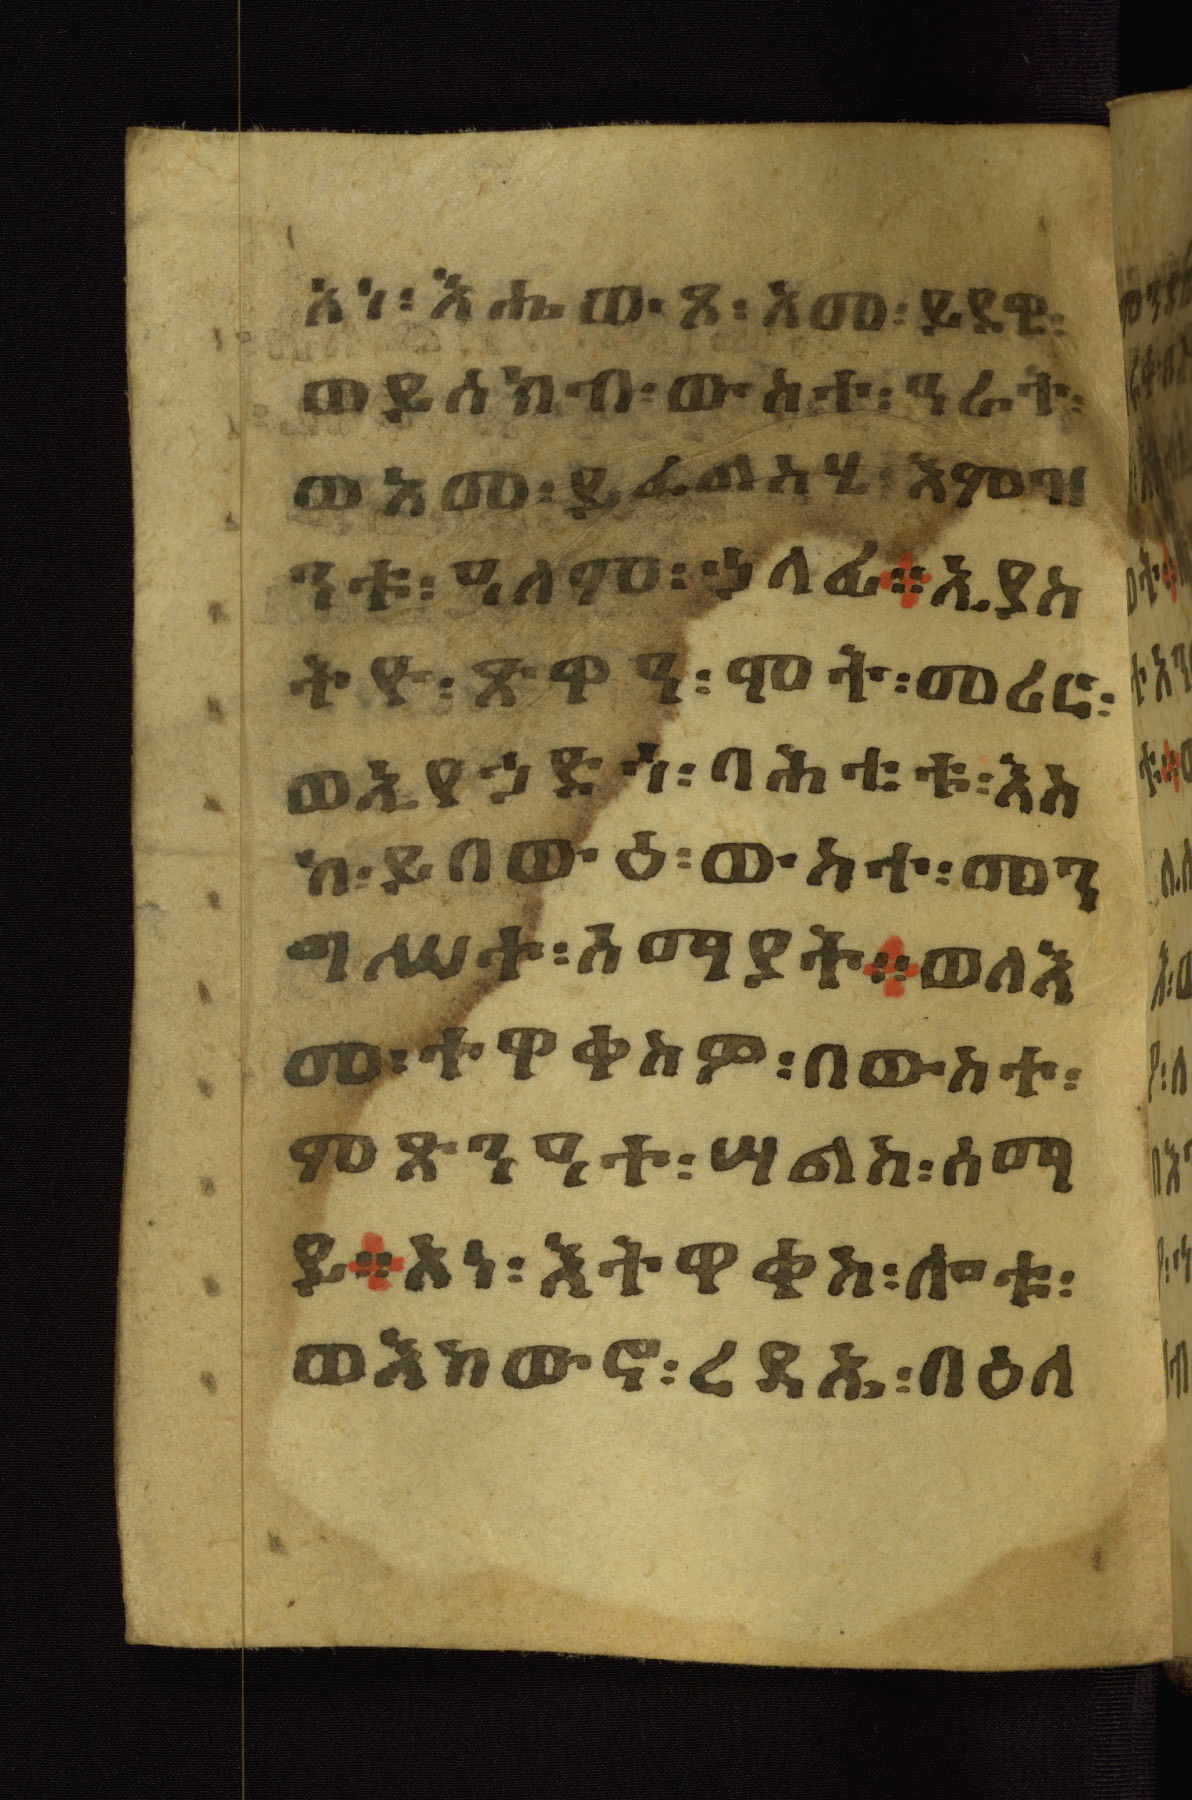 እነ፡እሔውጾ፡እመ፡ይደዊ፡
ወይሰክብ፡ውስተ፡ዓራት፡
ወእመ፡ይፈልስሂ፡እምዝ
ንቱ፡ዓለም፡ኃላፊ።ኢያስ
ትዮ፡ጽዋዓ፡ሞት፡መሪር፡
ወኢያኃድጎ፡ባሕቲቱ፡እስ
ከ፡ይበውዕ፡ውስተ፡መን
ግሥተ፡ሰማያት።ወለእ
መ፡ተዋቀስዎ፡በውስተ፡
ምጽንዓተ፡ሣልስ፡ሰማ
ይ።እነ፡እትዋቀስ፡ሎቱ፡
ወእከውኖ፡ረዳኤ፡በዕለ